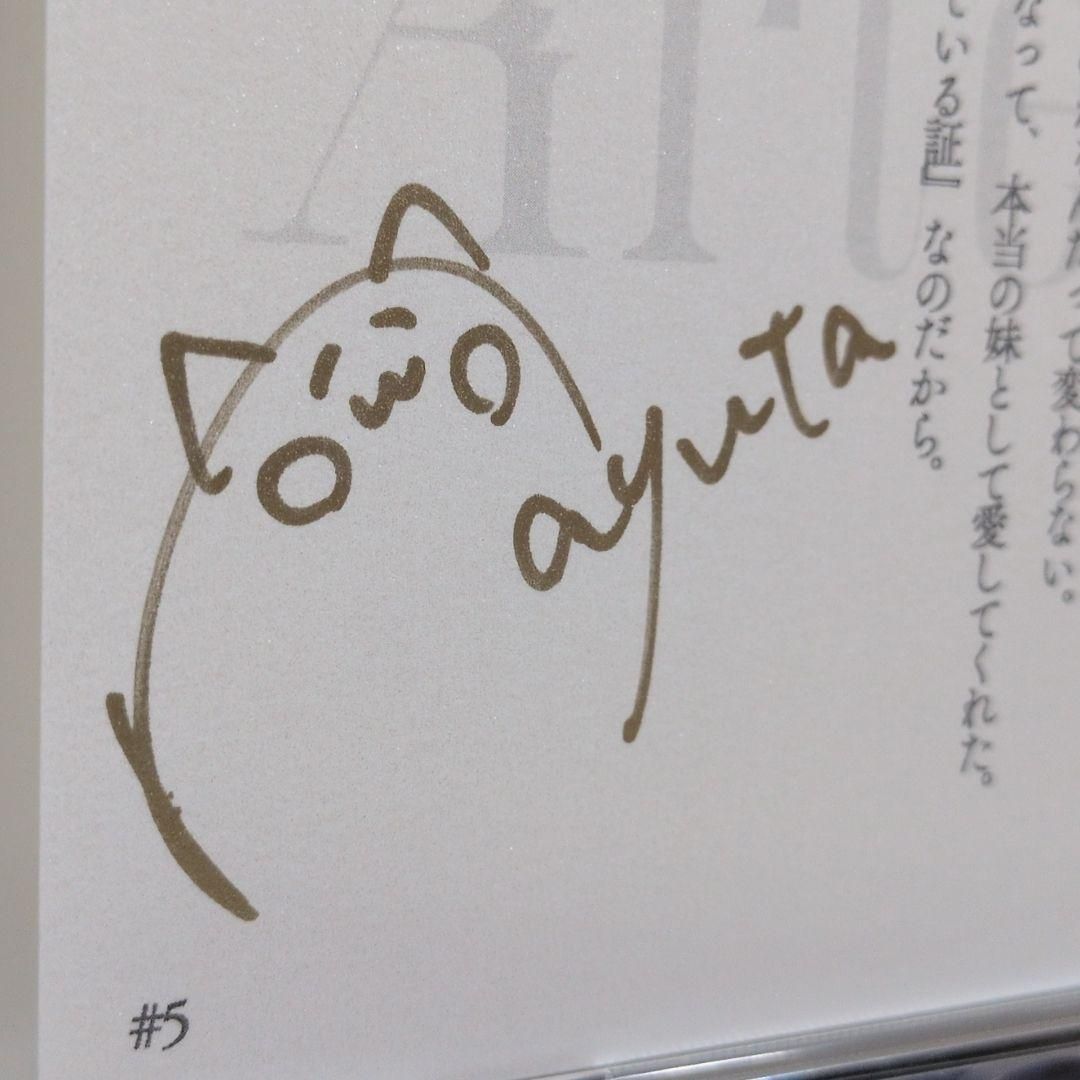 って変わらない。
なって、本当の妹として愛してくれた。
ている証』なのだから。
ayuta
#5